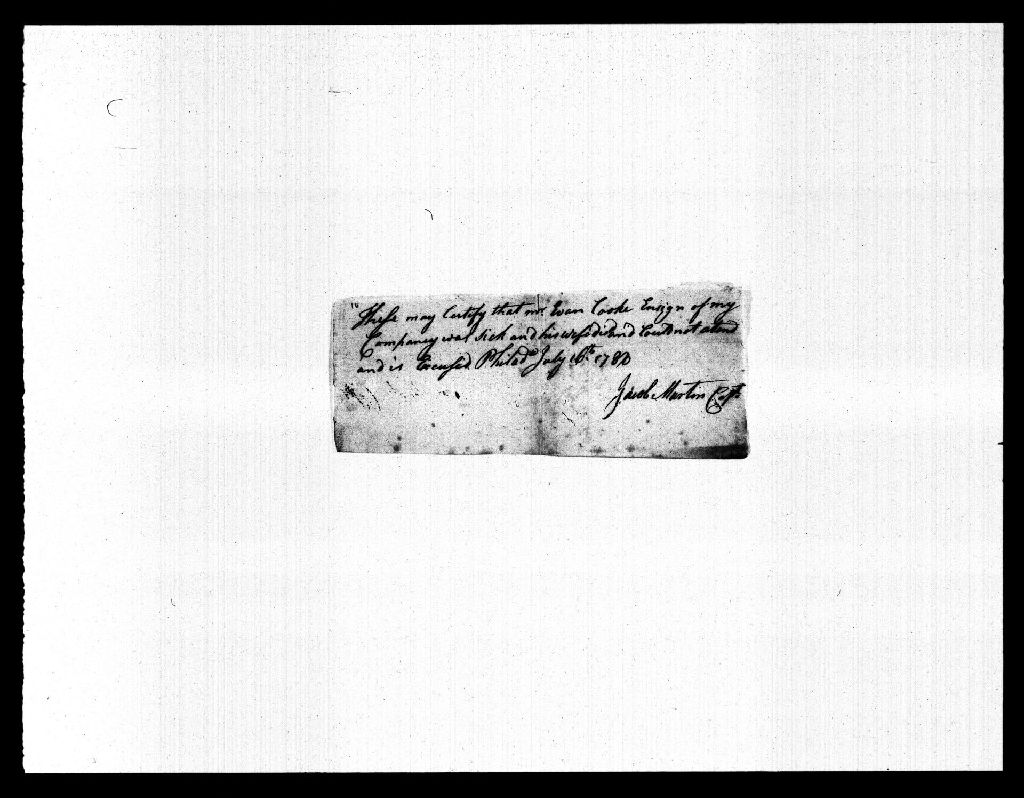 These may Certify that mr. Evan Cooke Ensign of my
Company was sick and his wife and Could not atend
and is Excused Philada July 1780
Jacob Martin Capt.